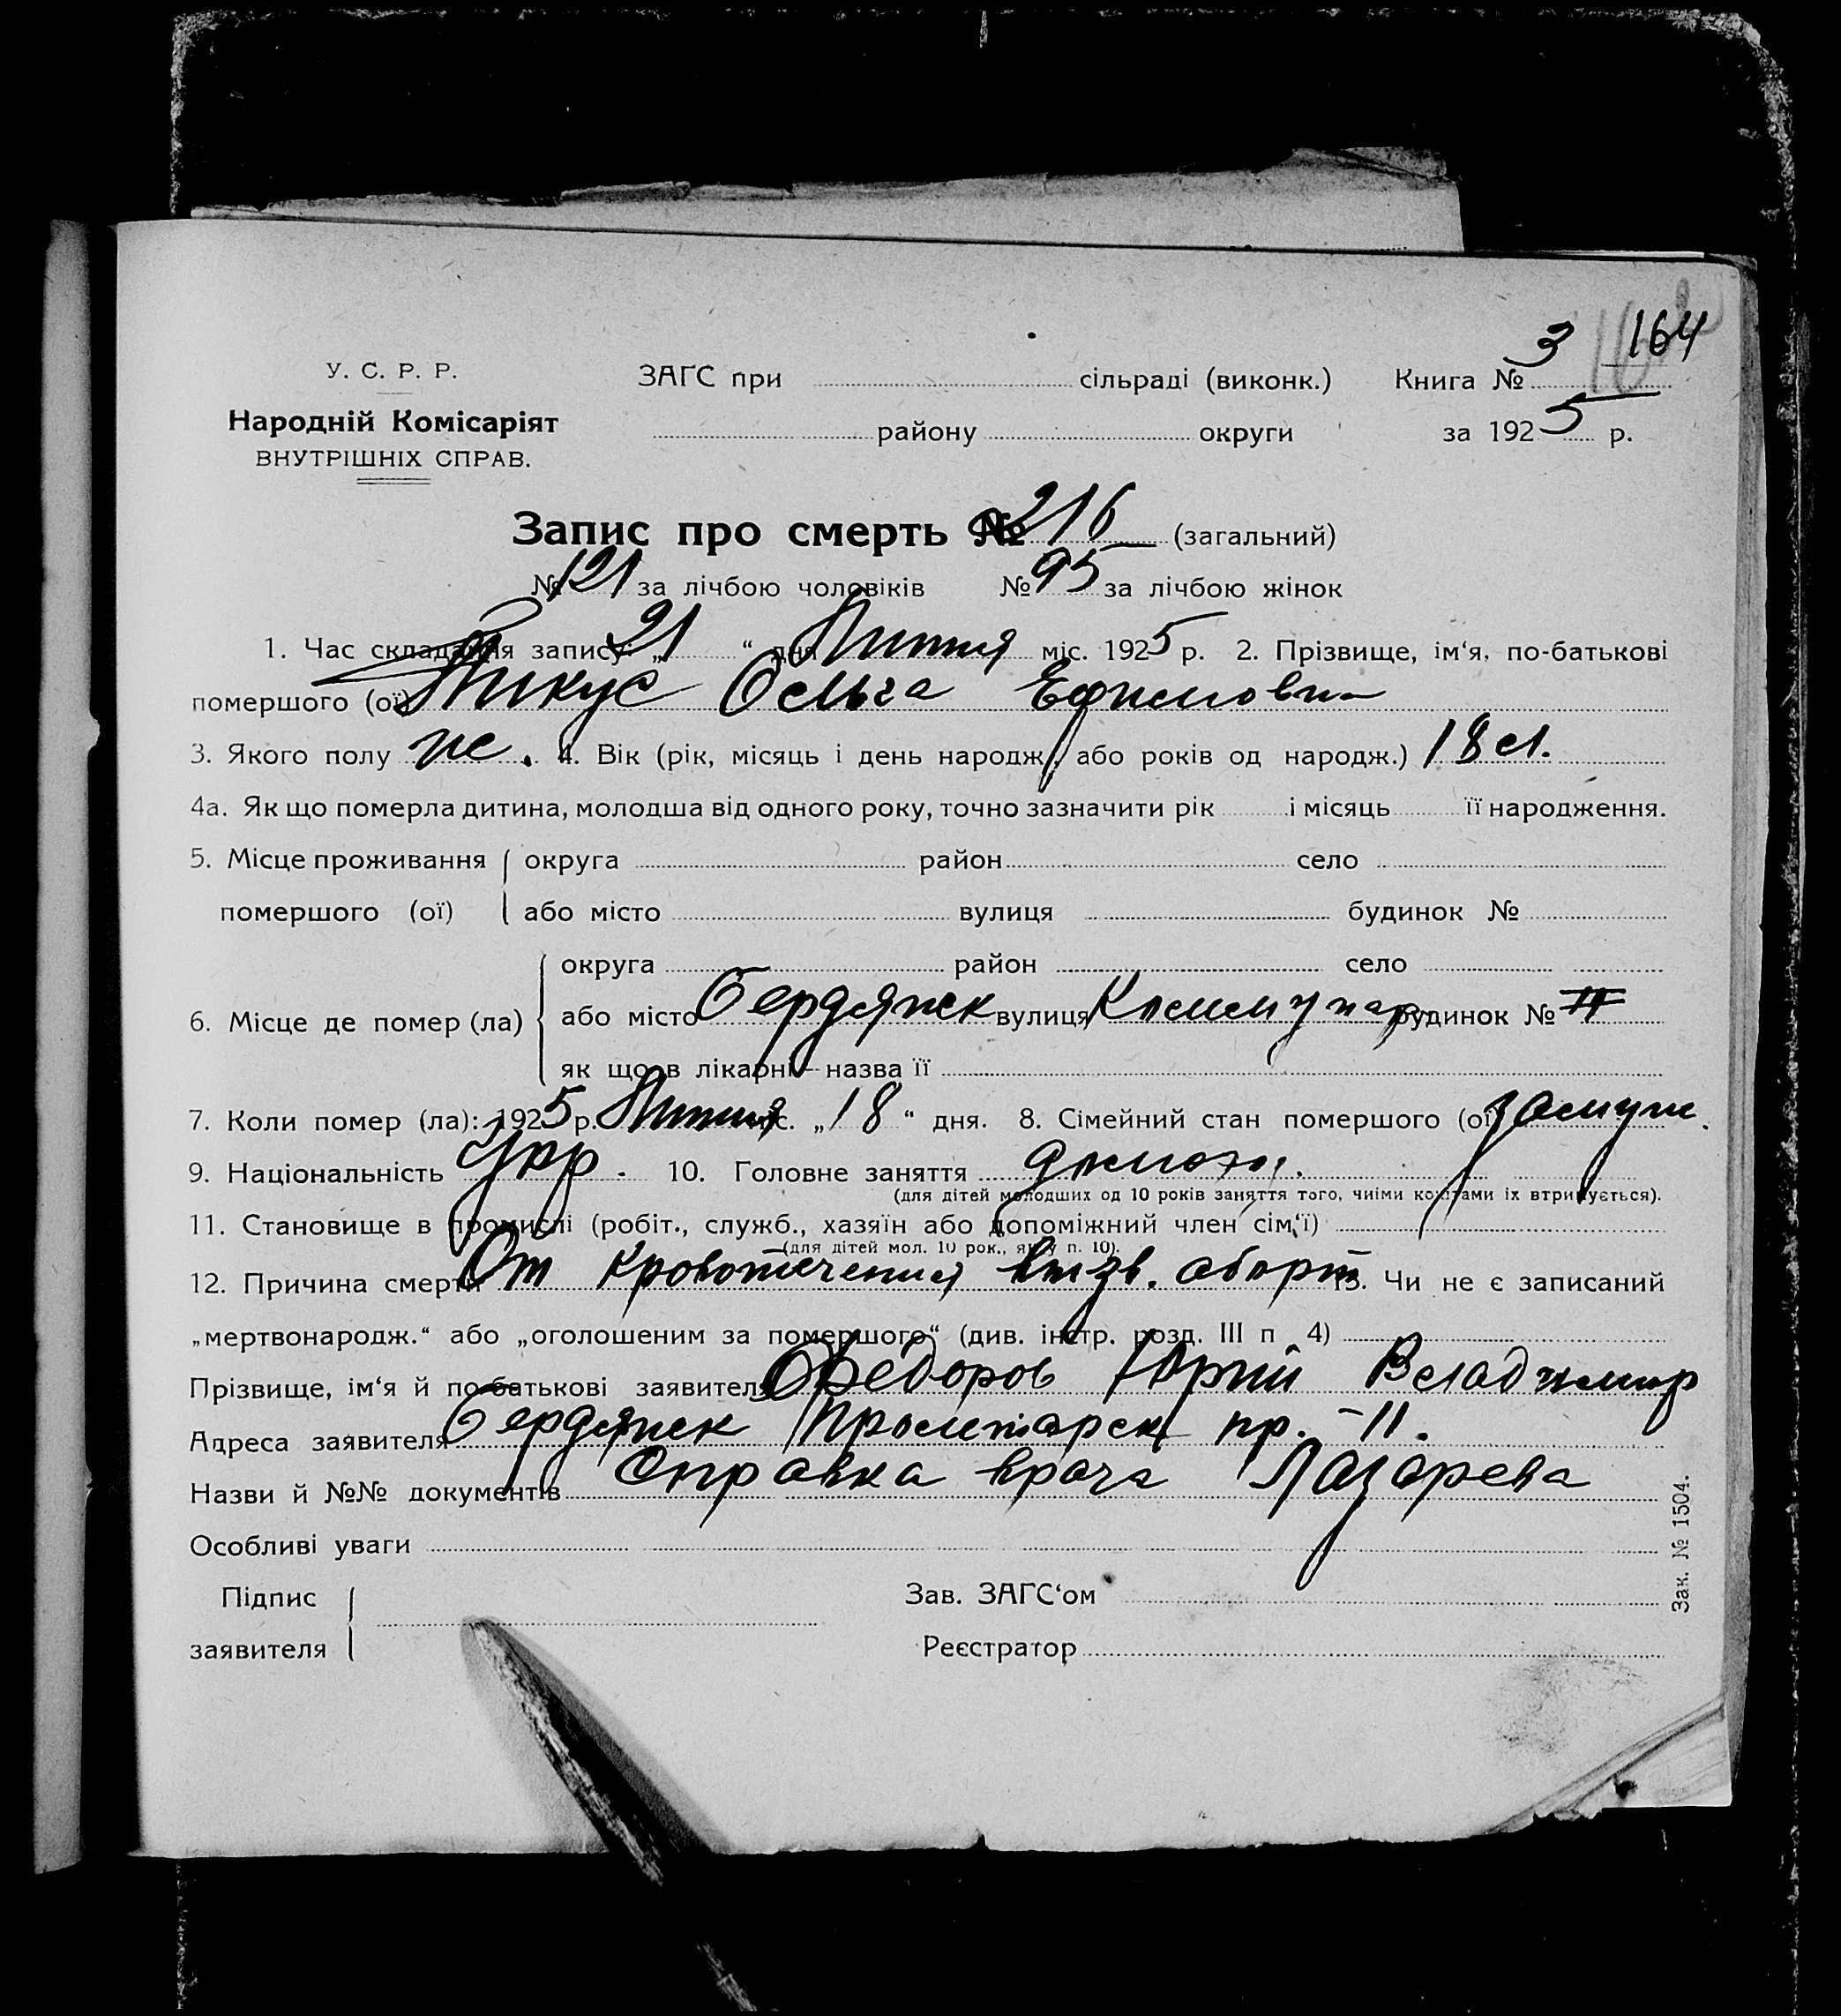 164
У. С. Р. Р. ЗАГС при сільраді (виконк.) Книга № 3
Народній Комісаріят району округи за 1925 р.
ВНУТРІШНІХ СПРАВ.
Запис про смерть № 216 (загальний)
№ 121 за лічбою чоловіків № 95 за лічбою жінок
1. Час складання запису: „21“ дня Липня міс. 1925 р. 2. Прізвище, ім‘я, по-батькові
помершого (ої) Ольга Ефимовн
3. Якого полу ж. 4. Вік (рік, місяць і день народж., або років од народж.) 18 л.
4а. Як що померла дитина, молодша від одного року, точно зазначити рік і місяць її народження.
5. Місце проживання округа район село
помершого (ої) або місто вулиця будинок №
округа район село
6. Місце де помер (ла) або місто Бердянск вулиця Коммунар будинок №
як що в лікарні — назва її
7. Коли помер (ла): 1925 р. Липня міс. „18“ дня. 8. Сімейний стан помершого (ої) замуж.
9. Національність Укр. 10. Головне заняття домохоз.
(для дітей молодших од 10 років заняття того, чиїми коштами їх втримується).
11. Становище в промислі (робіт., служб., хазяїн або допоміжний член сім‘ї)
(для дітей мол. 10 рок., як у п. 10).
12. Причина смерти От кровотечения вызв. аборт 13. Чи не є записаний
„мертвонародж.“ або „оголошеним за помершого“ (див. інстр. розд. III п 4)
Прізвище, ім‘я й по-батькові заявителя Федоров Юрий Владимир
Адреса заявителя Бердянск Пролетарск пр. - 11.
Назви й №№ документів Справка врача Лазарева
Особливі уваги
Підпис Зав. ЗАГС‘ом
заявителя Реєстратор
Зак. № 1504.